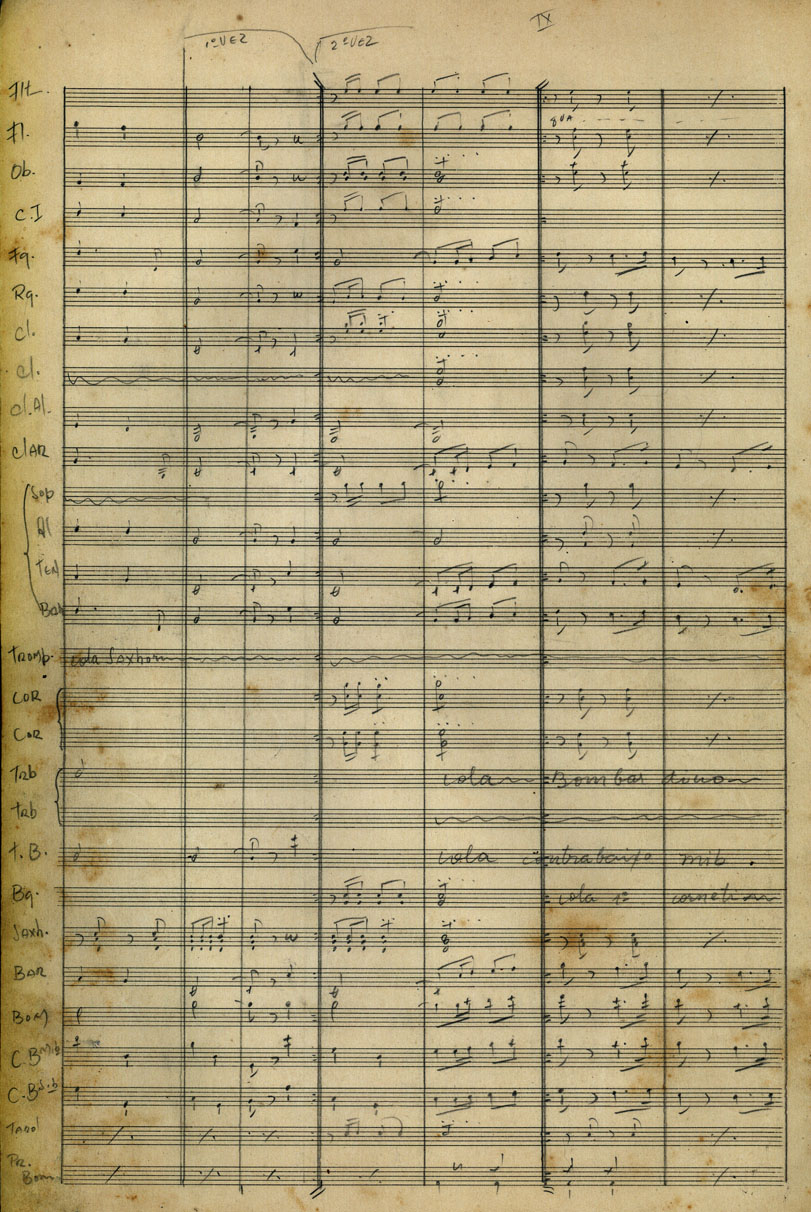 IX
1ª VEZ 2ª VEZ
Flt.
Fl.
8va
Ob.
C.I
Fg.
Rq.
Cl.
Cl.
Cl.Al.
ClAR
Sop
Al
TEN
BAR
Tromp. cola Saxhorn
COR
COR
Trb cola Bombardino
Trb
T.B. cola contrabaixo mib.
Bg. cola 1º cornetim
Saxh.
BAR
BOM
C.B mib
C.B sib
Tarol
Pr.
Bom.